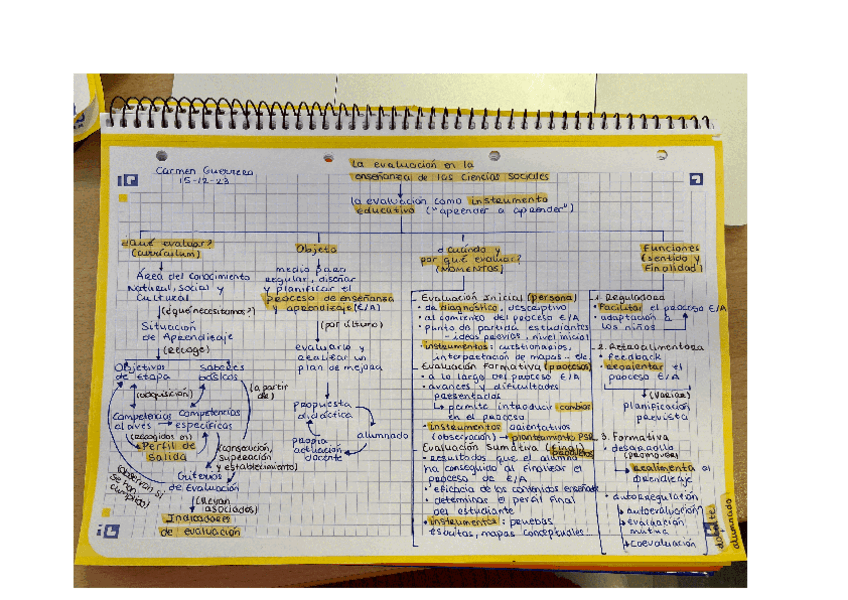 Carmen Guerrero
15-12-23
La evaluación en la
enseñanza de las ciencias sociales
la evaluación como instrumento
educativo ("aprender a aprender")
¿Qué evaluar?
(currículum)
Área del Conocimiento
Natural, Social y
Cultural
(¿qué necesitamos?)
Situación
de Aprendizaje
(Recoge)
Objetivos
de Etapa
Saberes
básicos
(adquisición)
(a partir
de)
Competencias
claves
Competencias
específicas
(recogidos en)
Perfil de
Salida
(consecución,
superación
y establecimiento)
(observan si
se han
cumplido)
Criterios
de Evaluación
(llevan
asociados)
Indicadores
de evaluación
Objeto
medio para
regular, diseñar
y planificar el
proceso de enseñanza
y aprendizaje (E/A)
(por último)
evaluarlo y
realizar un
plan de mejora
propuesta
didáctica
alumnado
propia
actuación
docente
¿Cuándo y
por qué evaluar?
(MOMENTOS)
Evaluación Inicial (persona)
• de diagnóstico, descriptivo
• al comienzo del proceso E/A
• punto de partida estudiantes
- ideas previas, nivel inicial
• instrumentos: cuestionarios,
interpretación de mapas... etc.
Evaluación Formativa (procesos)
• a lo largo del proceso E/A
• avances y dificultades
presentados
permite introducir cambios
en el proceso
• instrumentos orientativos
(observación) → planteamiento PSR
Evaluación Sumativa (final)
productos
• resultados que el alumno
ha conseguido al finalizar el
proceso de E/A
• eficacia de los contenidos enseñados
• determinar el perfil final
del estudiante
• instrumentos: pruebas
escritas, mapas conceptuales.
Funciones
(sentido y
finalidad)
1. Reguladora
• Facilitar el proceso E/A
• adaptación a
los niños
2. Retroalimentadora
• feedback
• reorientar el
proceso E/A
(variar)
planificación
prevista
3. Formativa
• desarrollo
(promover)
realimenta el
aprendizaje
• autorregulación
autoevaluación
evaluación
mutua
coevaluación
docente
alumnado